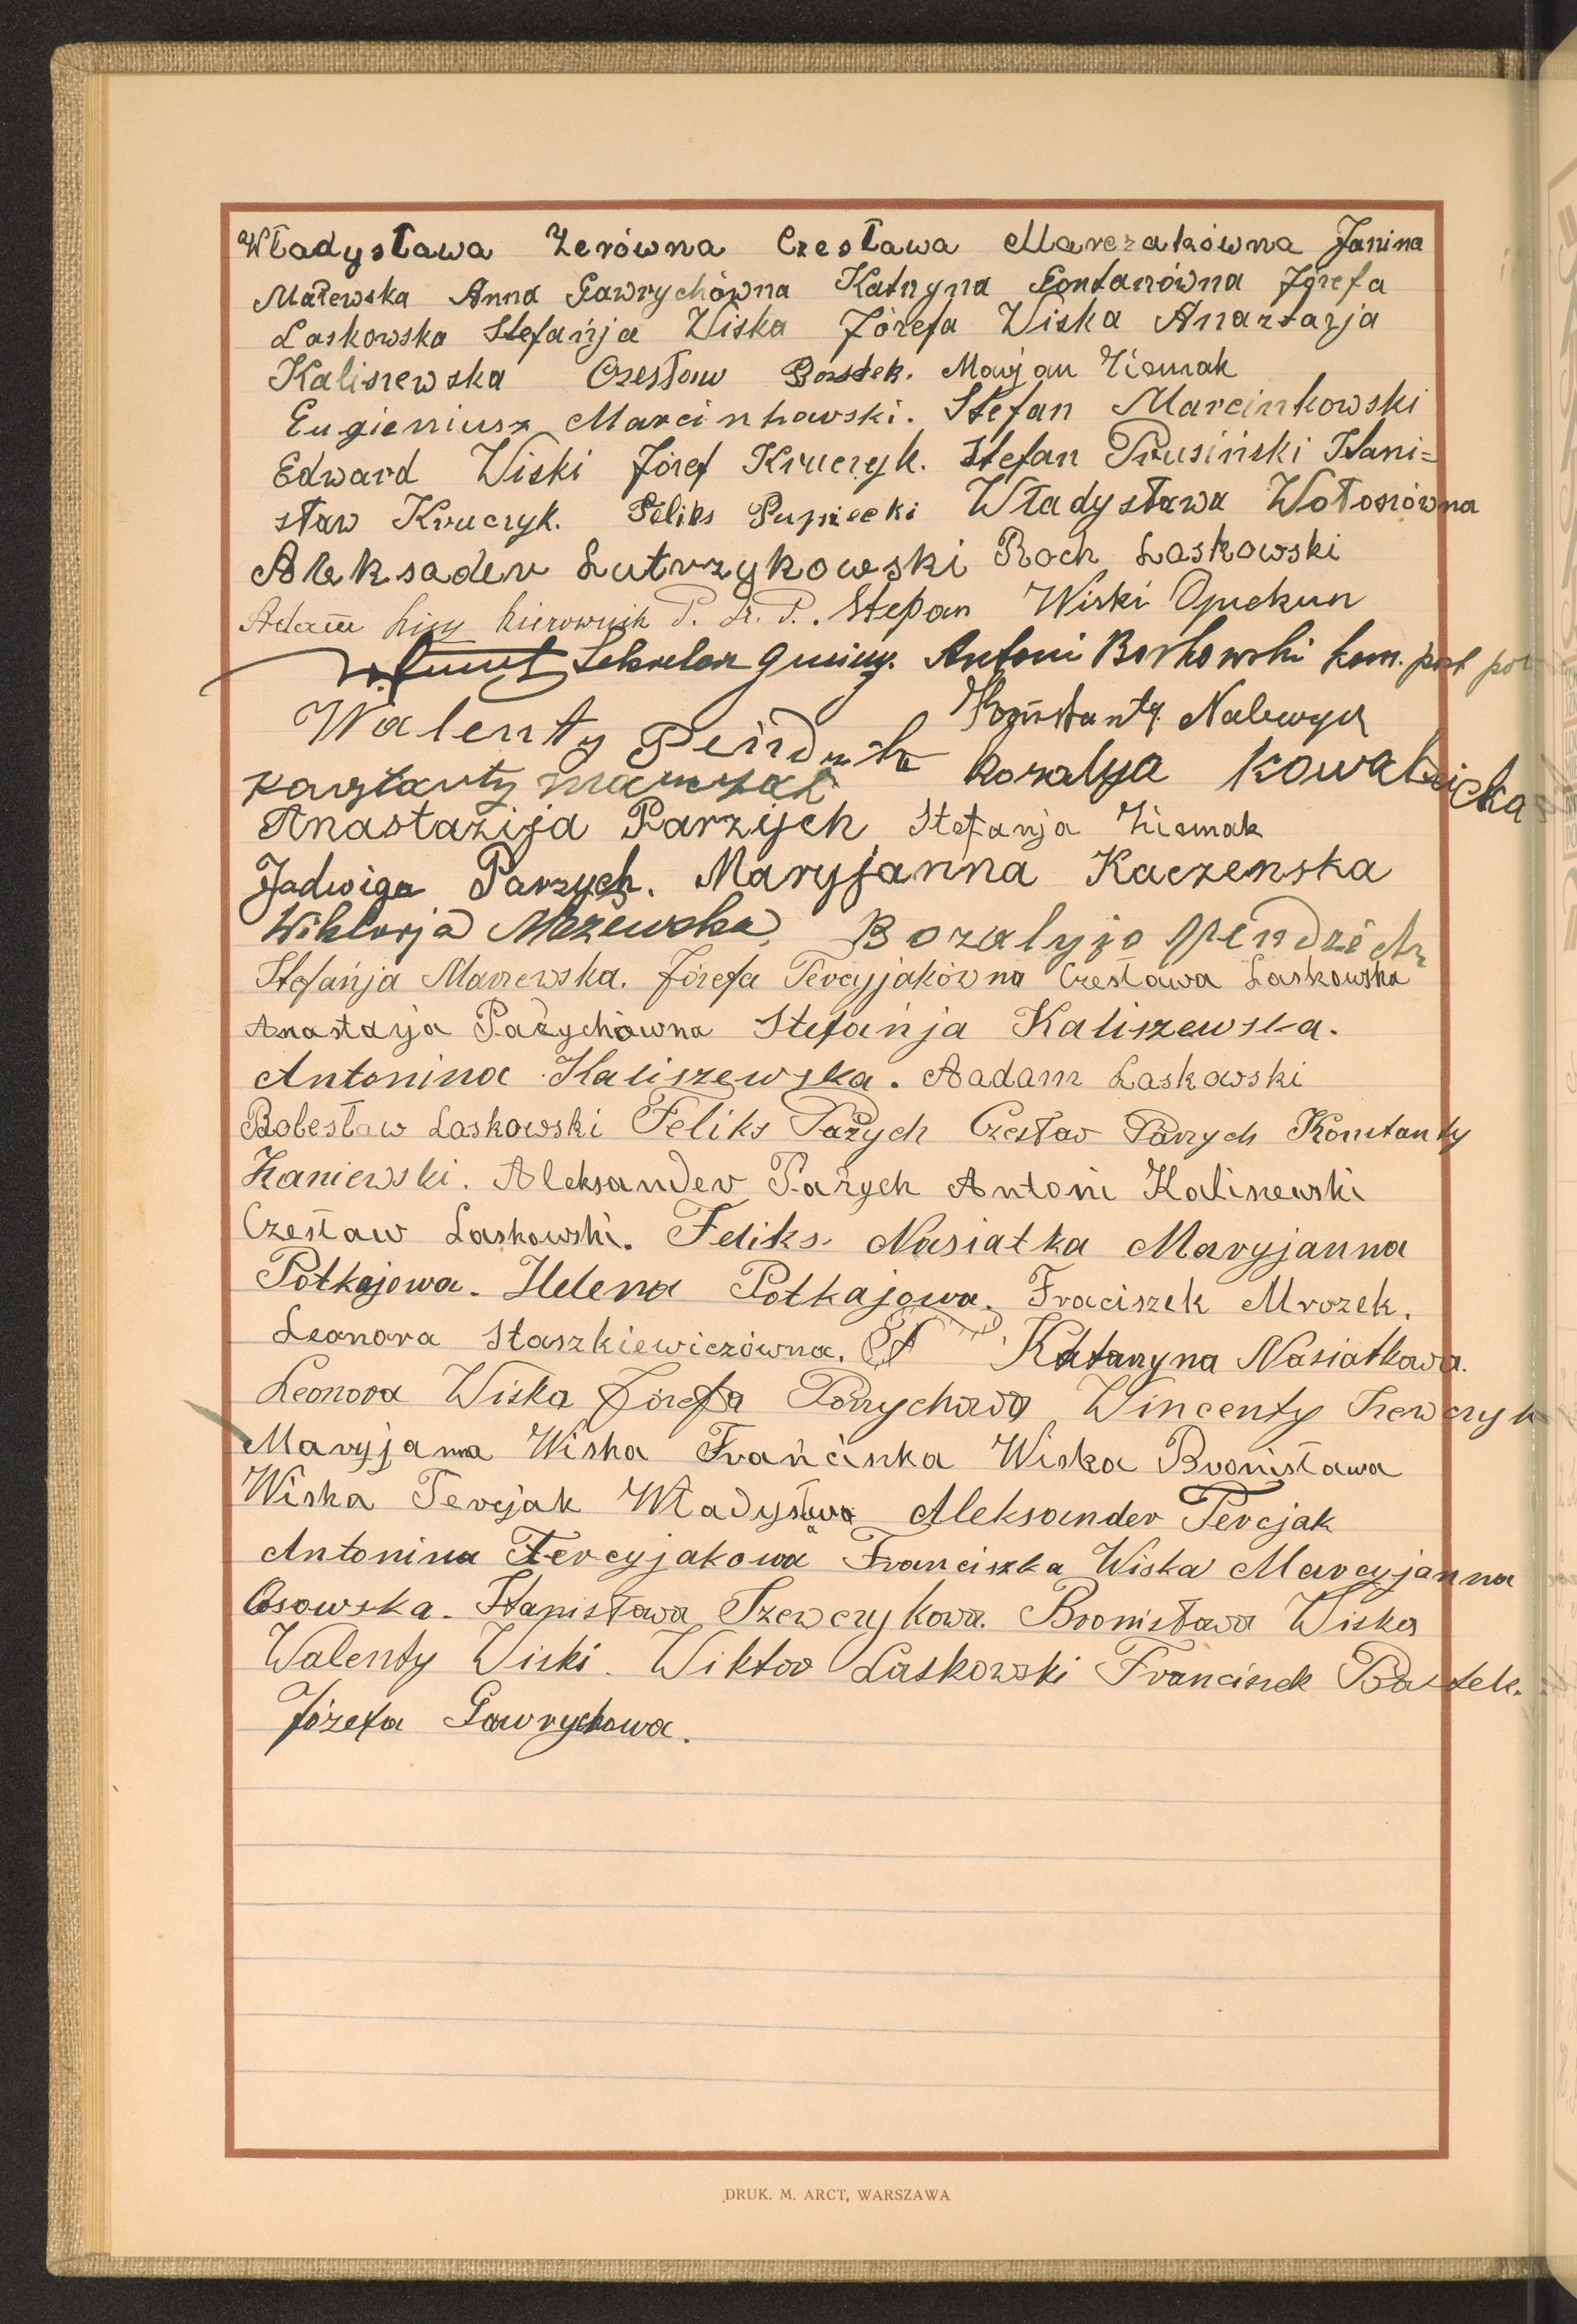 Władysława Zerówna Czesława Marczakówna Janina
Małewska Anna Gawrychówna Katnyna Gontarówna Józefa
Laskowska Stefańja Wiska Józefa Wiska Anaztazja
Kaliszewska Czesław Bastek. Marjan Ziemak
Eugieniusz Marcinkowski. Stefan Marcinkowski
Edward Wiski Józef Kruczyk. Stefan Prusiński Stani=
sław Kruczyk. Feliks Pupiecki Władysława Wołoszówna
Aleksader Lutrzykowski Roch Laskowski
Adam kierownik P. S. P. Stefan Wiski Opiekun
Sekretarz gminy. Antoni Borkowski kom. post pol
Walenty Konstanty Nalewajk
Pendzich Rozalya Kowalzicka
Anastazija Parzych Stefanja Ziemak
Jadwiga Parzych. Maryjanna Kaczenska
Wiktorja Mężewska Rozalyja Pendzich
Stefańja Marzewska. Józefa Tercyjakówna Czesława Laskowska
Anastazja Pażychówna Stefańja Kaliszewska.
Antonina Kaliszewska. Aadam Laskowski
Bolesław Laskowski Feliks Pażych Czesław Parzych Konstanty
Kaniewski. Aleksander Pażych Antoni Kaliszewski
Czesław Laskowski. Feliks Nasiatka Maryjanna
Potkajowa. Helena Potkajowa. Fraciszek Mrozek.
Leonora Staszkiewiczówna. Katarzyna Nasiatkowa.
Leonora Wiska Józefa Parzychowa Wincenty Szewczyk
Maryjanna Wiska Frańciszka Wiska Bronisława
Wiska Tercjak Władysława Aleksander Tercjak
Antonina Tercyjakowa Franciszka Wiska Marcyjanna
Osowska. Stanisława Szewczykowa. Bronisława Wiska
Walenty Wiski. Wiktor Laskowski Franciszek Bastek.
Józefa Gawrychowa.
DRUK. M. ARCT, WARSZAWA